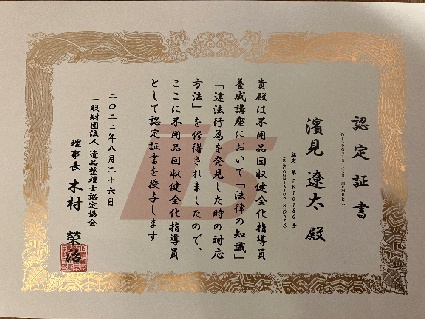 認定証書
濱見 遼太 殿
貴殿は不用品回収健全化指導員
養成講座において「法律の知識」
「違法行為を発見した時の対応
方法」を修得されましたので、
ここに不用品回収健全化指導員
として認定証書を授与します
二〇二二年八月二十六日
一般財団法人 遺品整理士認定協会
理事長 木村 榮治